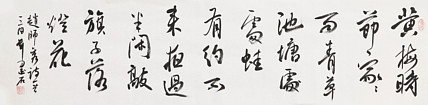 黄梅時
節家々
雨青草
池塘處
處蛙
有約不
来夜過
半闲敲
棋子落
燈花
趙師秀詩